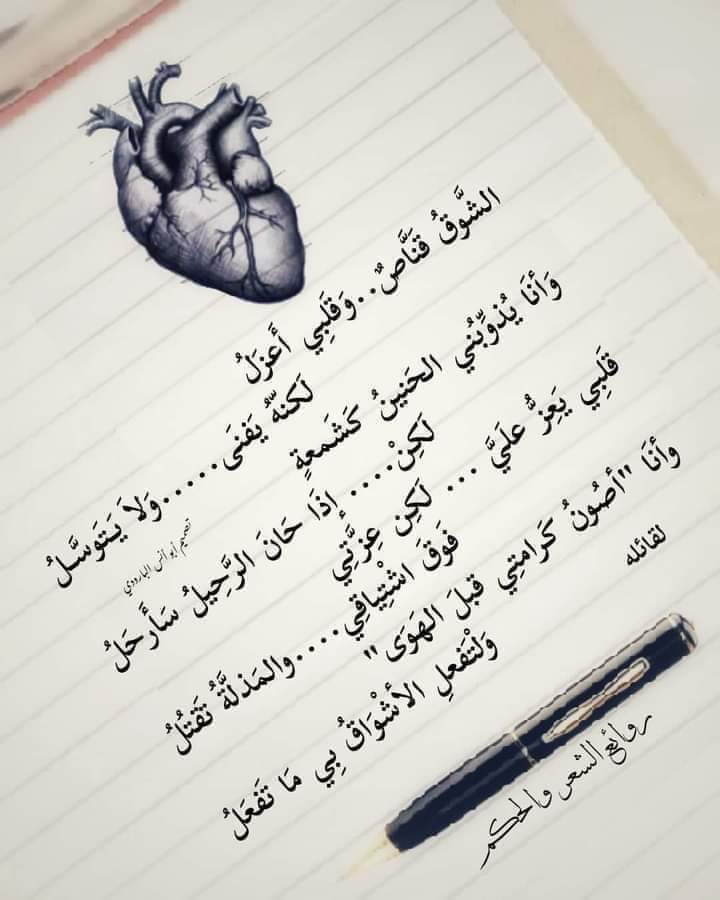 الشَّوقُ قنَّاصٌ..وَقَلبِي أَعزَلُ
لَكنهُّ يَفنَى.....وَلاَ يَتَوَسَّلُ
وَأنَا يُذوِّبُني الحَنينُ كَشَمعةٍ
لَكِنْ.... إذَا حَانَ الرَّحِيلُ سَأَرحَلُ
قلَبِي يَعِزُّ علَيَّ ... لَكِن عِزَّتِي
فَوقَ اشتِيِاقِي....والمَذلَّةُ تَقتُلُ
وأنَا "أصُونُ كَرامتِي قبلَ الهَوَى"
وَلْتَفعلِ الأشْوَاقُ بِي مَا تَفعَلُ
لقائله
تصميم أبو أنس البارودي
روائع الشعر والحكم